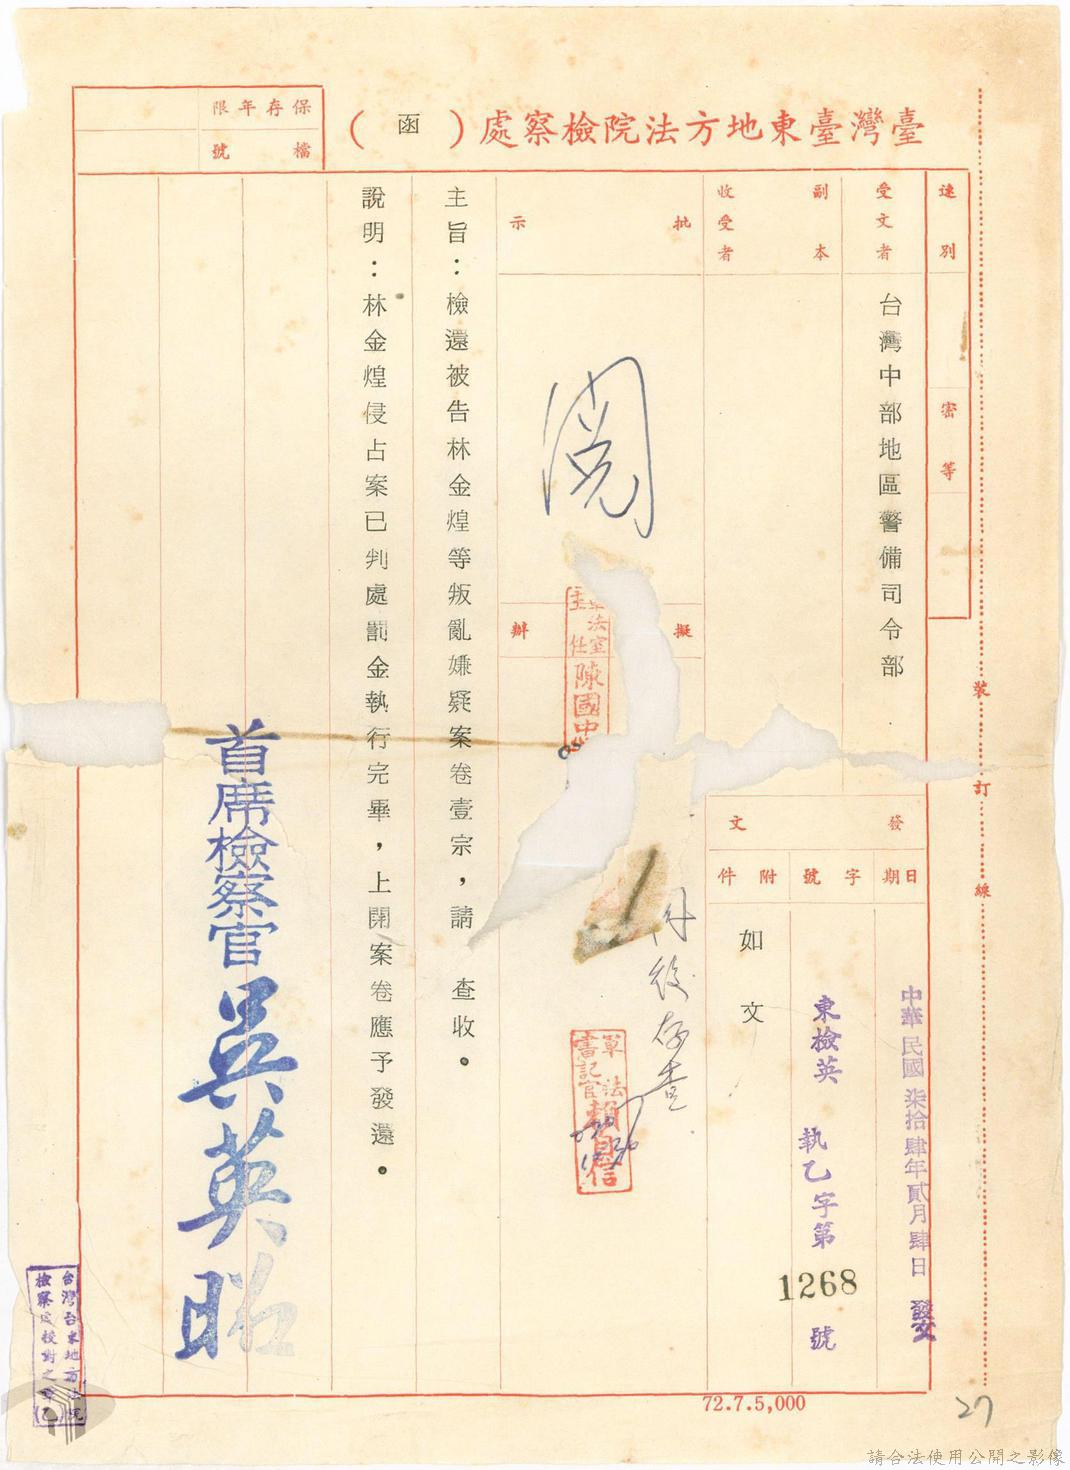 臺灣臺東地方法院檢察處（函）
保存年限
檔號
速別
密等
受文者
台灣中部地區警備司令部
副本
收受者
發文
日期
中華民國柒拾肆年貳月肆日發
字號
東檢英 執乙字第1268號
附件
如文
批示
閱
擬辦
軍法室主任陳國中
存查
軍法書記官
主旨：檢還被告林金煌等叛亂嫌疑案卷壹宗，請 查收。
說明：林金煌侵占案已判處罰金執行完畢，上開案卷應予發還。
首席檢察官吳英昭
台灣台東地方法院
檢察處校對之章(乙)
裝訂線
72.7.5,000
27
請合法使用公開之影像